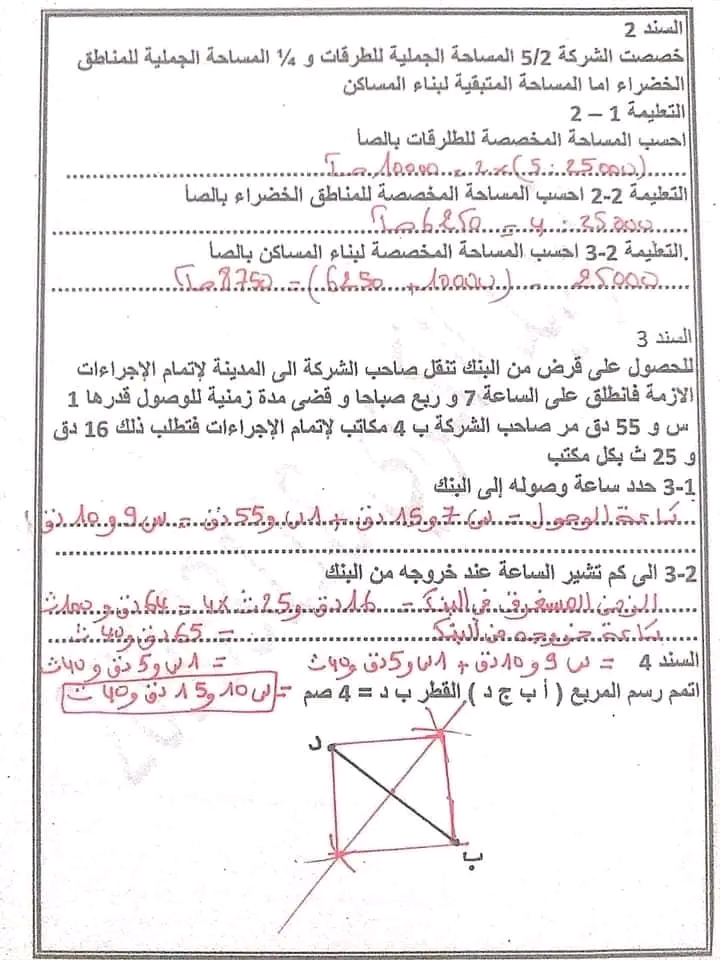 السند 2
خصصت الشركة 5/2 المساحة الجملية للطرقات و ¼ المساحة الجملية للمناطق
الخضراء اما المساحة المتبقية لبناء المساكن
التعليمة 1 – 2
احسب المساحة المخصصة للطلرقات بالصآ
(25000 : 5) × 2 = 10000 صآ
التعليمة 2-2 احسب المساحة المخصصة للمناطق الخضراء بالصآ
25000 : 4 = 6250 صآ
.التعليمة 3-2 احسب المساحة المخصصة لبناء المساكن بالصآ
25000 - (10000 + 6250) = 8750 صآ
السند 3
للحصول على قرض من البنك تنقل صاحب الشركة الى المدينة لإتمام الإجراءات
الازمة فانطلق على الساعة 7 و ربع صباحا و قضى مدة زمنية للوصول قدرها 1
س و 55 دق مر صاحب الشركة ب 4 مكاتب لإتمام الإجراءات فتطلب ذلك 16 دق
و 25 ث بكل مكتب
3-1 حدد ساعة وصوله إلى البنك
ساعة الوصول = س 7 و 15 دق + 1س و 55 دق = س 9 و 10 دق
3-2 الى كم تشير الساعة عند خروجه من البنك
الزمن المستغرق في البنك = 16 دق و 25 ث × 4 = 64 دق و 100 ث
= 65 دق و 40 ث
= 1س و 5 دق و 40 ث
ساعة خروجه من البنك
= س 9 و 10 دق + 1س و 5 دق و 40 ث
= س 10 و 15 دق و 40 ث
السند 4
اتمم رسم المربع ( أ ب ج د ) القطر ب د = 4 صم
د
ب